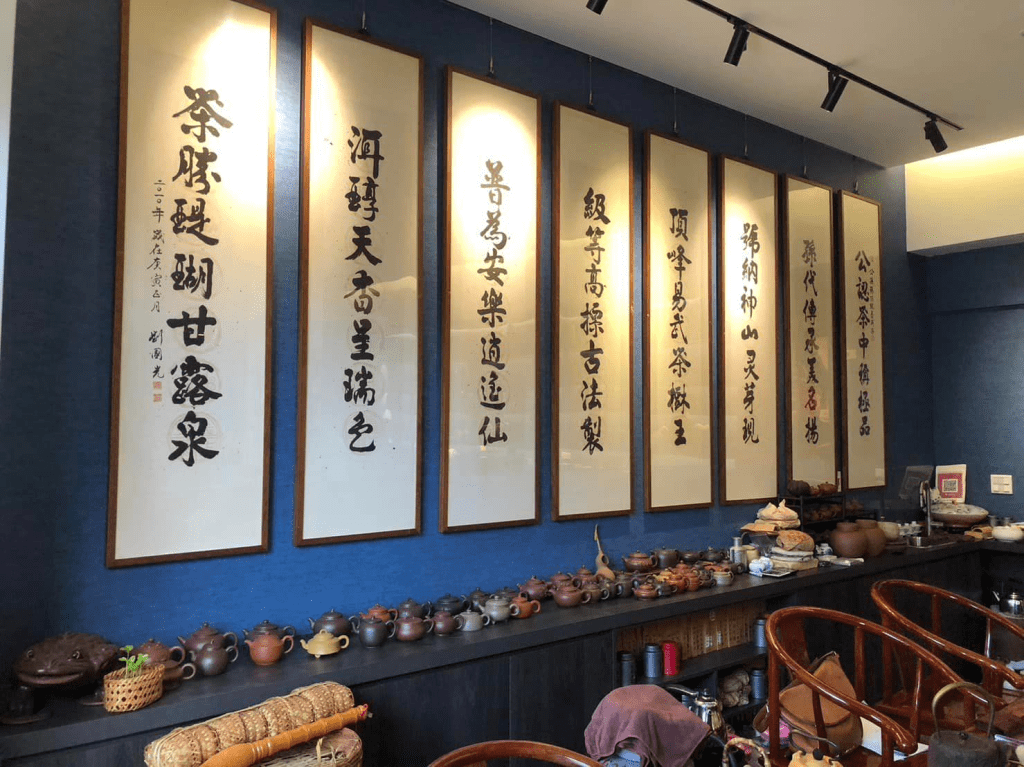 公認茶中稱極品
孫代傳承美名揚
號納神山灵芽現
頂峰易武茶樹王
級等高操古法製
普為安樂逍遙仙
洱醇天香呈瑞色
茶勝醍醐甘露泉
二〇一〇年歲在庚寅正月 劉國光